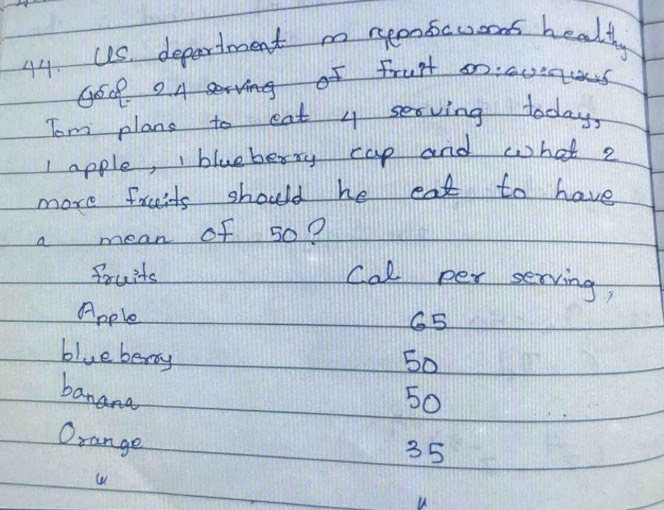 44. US. department healthy
2.4 serving of fruit
Tom plans to eat 4 serving today,
1 apple, 1 blueberry cup and what 2
more fruits should he eat to have
a mean of 50?
fruits Cal per serving,
Apple 65
blueberry 50
banana 50
Orange 35
" "